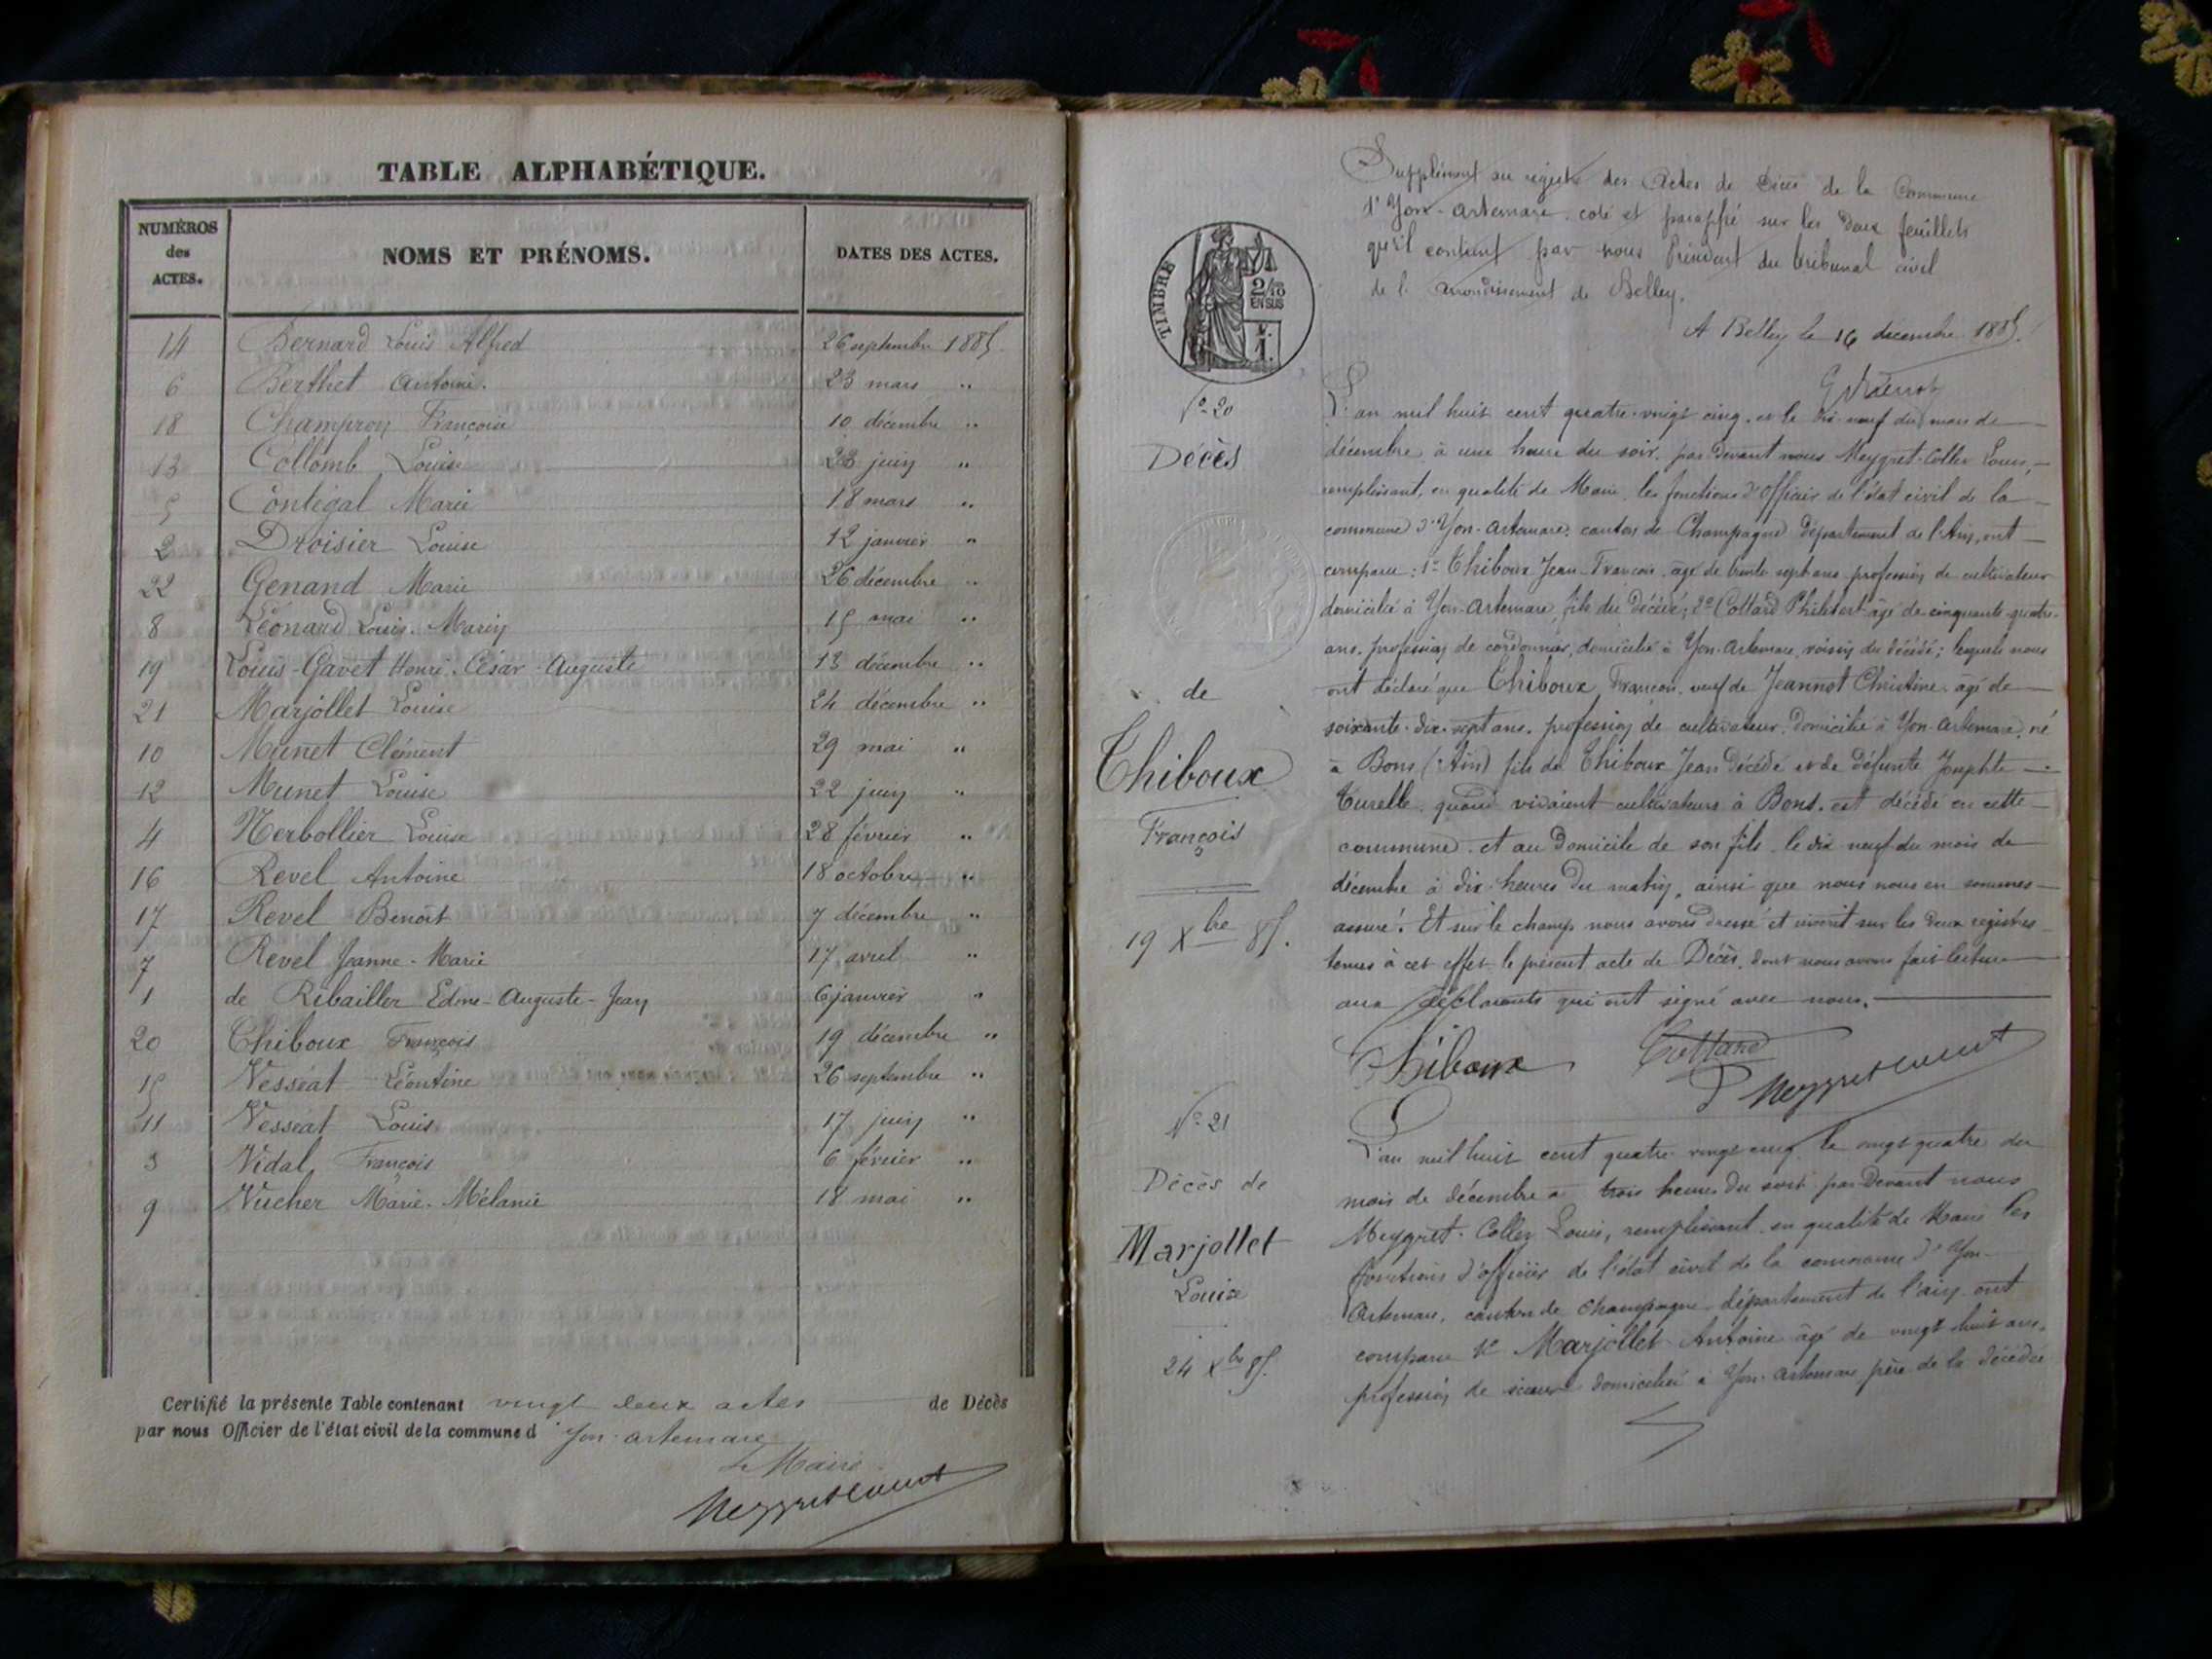 TABLE ALPHABÉTIQUE.
NUMÉROS des ACTES. NOMS ET PRÉNOMS. DATES DES ACTES.
14 Bernard Louis Alfred 26 septembre 1885
6 Berthet Antoine. 23 mars "
18 Champion Françoise 10 décembre "
13 Collomb Louise 23 juin "
5 Contégal Marie 18 mars "
2 Droisier Louise 12 janvier "
22 Genand Marie 26 décembre "
8 Léonard Louis-Marin 15 mai "
19 Louis-Gavet Henri-César-Auguste 13 décembre "
21 Marjollet Louise 24 décembre "
10 Munet Clément 29 mai "
12 Munet Louise 22 juin "
4 Nerbollier Louise 28 février "
16 Revel Antoine 18 octobre "
17 Revel Benoît 7 décembre "
7 Revel Jeanne-Marie 17 avril "
1 de Ribailler Edme-Auguste-Jean 6 janvier "
20 Thiboux François 19 décembre "
15 Vesséat Léontine 26 septembre "
11 Vesséat Louis 17 juin "
3 Vidal François 6 février "
9 Vucher Marie-Mélanie 18 mai "
Certifié la présente Table contenant vingt deux actes de Décès
par nous Officier de l'état civil de la commune d'Yon-artemare
Le Maire
Supplément au registre des Actes de Décès de la Commune
d'Yon-Artemare coté et paraphé sur les deux feuillets
qu'il contient par nous Président du tribunal civil
de l'arrondissement de Belley.
A Belley le 16 décembre 1885.
TIMBRE
2/10
EN SUS
No 20
Décès
de
Thiboux
François
19 Xbre 85.
L'an mil huit cent quatre-vingt cinq, et le dix-neuf du mois de
décembre à une heure du soir, par devant nous Meygret-Collet Louis,
remplissant, en qualité de Maire, les fonctions d'officier de l'état civil de la
commune d'Yon-Artemare, canton de Champagne département de l'Ain, ont
comparu : 1° Thiboux Jean-François, âgé de trente sept ans profession de cultivateur
domicilié à Yon-Artemare, fils du décédé; 2° Cottard Philibert âgé de cinquante-quatre
ans, profession de cordonnier, domicilié à Yon-Artemare, voisin du décédé; lesquels nous
ont déclaré que Thiboux, François, veuf de Jeannot Christine, âgé de
soixante-dix-sept ans, profession de cultivateur, domicilié à Yon-Artemare, né
à Bons (Ain) fils de Thiboux Jean décédé et de défunte Josephte
Curelle, quand vivaient cultivateurs à Bons, est décédé en cette
commune et au domicile de son fils le dix neuf du mois de
décembre à dix heures du matin, ainsi que nous nous en sommes
assuré. Et sur le champ nous avons dressé et inscrit sur les deux registres
tenus à cet effet le présent acte de Décès, dont nous avons fait lecture
aux déclarants qui ont signé avec nous.
Thiboux Cottard
No 21
Décès de
Marjollet
Louise
24 Xbre 85.
L'an mil huit cent quatre-vingt cinq le vingt quatre du
mois de décembre à trois heures du soir par devant nous
Meygret-Collet Louis, remplissant en qualité de Maire les
fonctions d'officier de l'état civil de la commune d'Yon-
Artemare, canton de Champagne département de l'ain ont
comparu 1° Marjollet Antoine âgé de vingt huit ans,
profession de scieur domicilié à Yon-Artemare père de la décédée